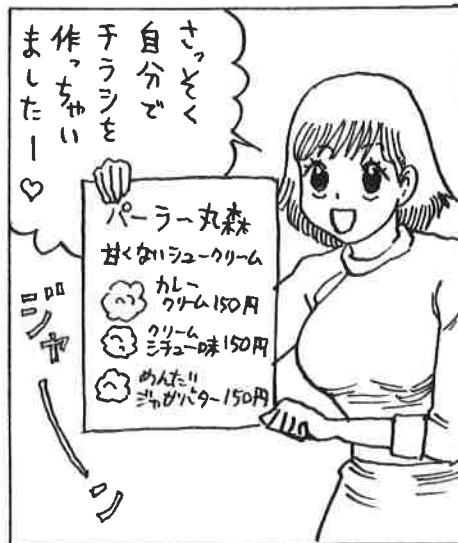 さっそく
自分で
チラシを
作っちゃい
ましたー♡
パーラー丸森
甘くないシュークリーム
カレー
クリーム150円
クリーム
シチュー味150円
めんたい
ジャガバター150円
ジャーン